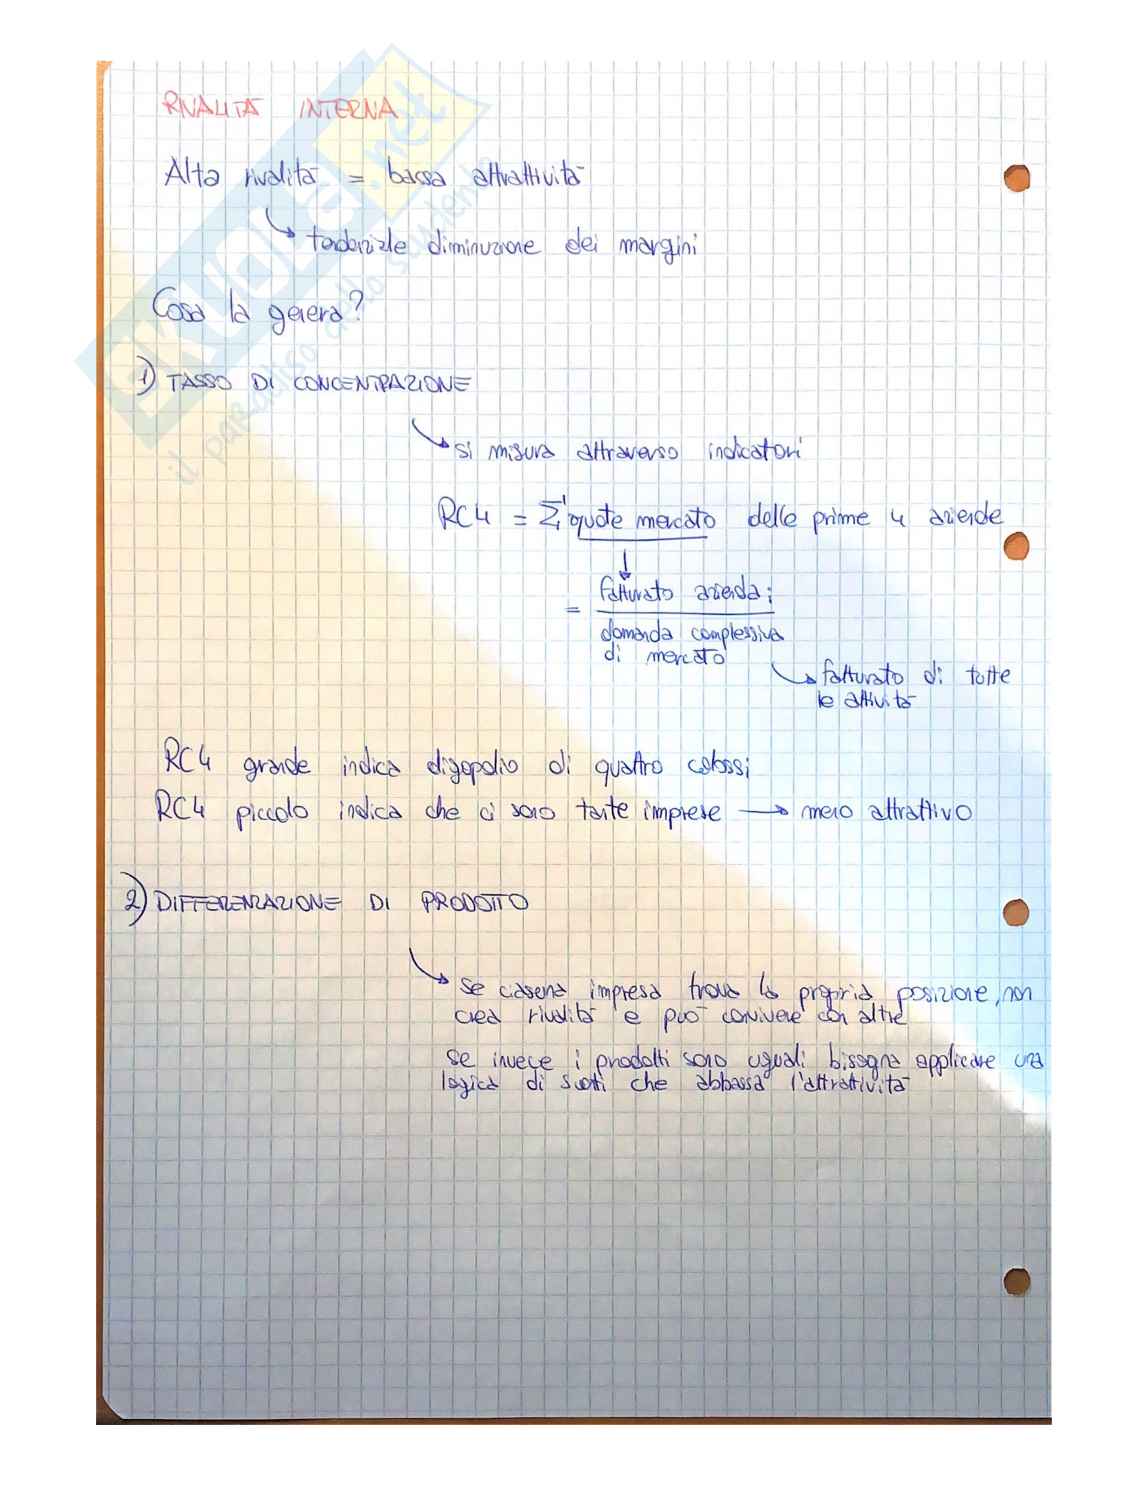 RIVALITÀ INTERNA
Alta rivalità = bassa attrattività
tendenziale diminuzione dei margini
Cosa la genera?
1) TASSO DI CONCENTRAZIONE
si misura attraverso indicatori
RC4 = Σi quote mercato delle prime 4 aziende
= fatturato azienda i
domanda complessiva
di mercato
fatturato di tutte
le attività
RC4 grande indica oligopolio di quattro colossi
RC4 piccolo indica che ci sono tante imprese → meno attrattivo
2) DIFFERENZAZIONE DI PRODOTTO
se ciascuna impresa trova la propria posizione, non
crea rivalità e può convivere con altre
se invece i prodotti sono uguali bisogna applicare una
logica di sconti che abbassa l'attrattività
SKUOLA.net
il paradiso dello studente